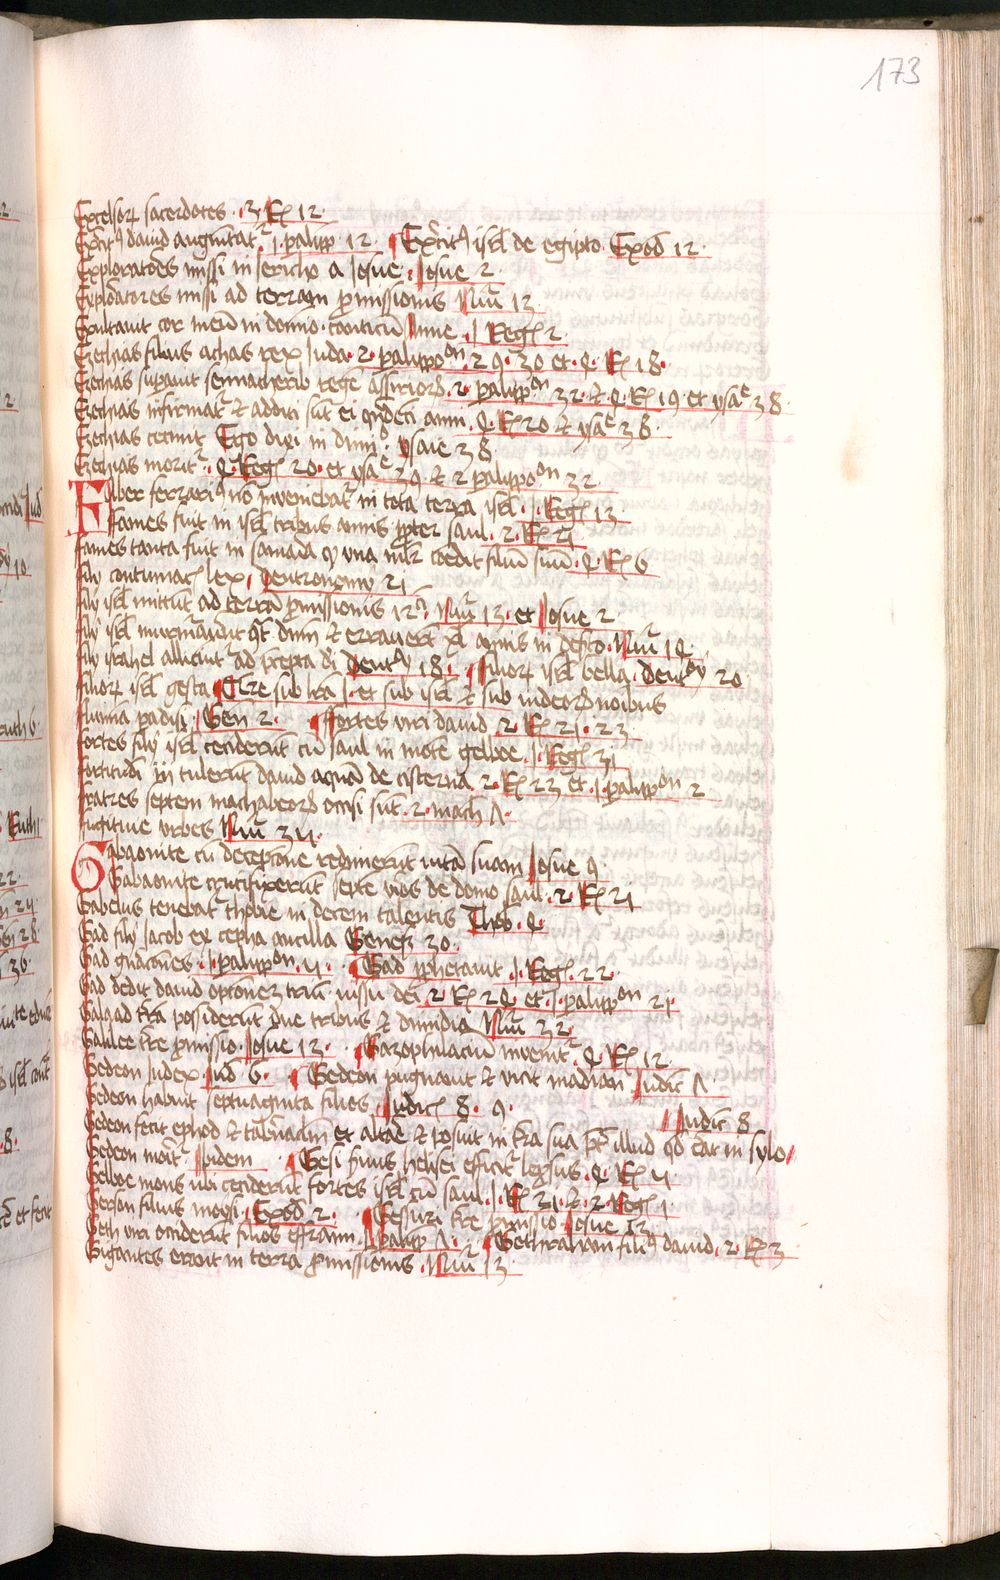 173
Excelsorum sacerdotes . 3 Reg 12 .
Exercitus dauid augmentatur . 1 . paralipp 12 . Exercitus israel de egipto . Exod 12 .
Exploratores missi in jericho a Josue . Josue 2 .
Exploratores missi ad terram promissionis Num 13 .
Exultauit cor meum in domino . canticum Anne . 1 Regum 2 .
Ezechias filius achas rex Juda . 2 . paralippomenon . 29 . 30 et . 4 . Reg 18 .
Ezechias superauit sennacherib regem assiriorum . 2 . paralippomenon 32 . et 4 . Reg 19 et ysaie 38
Ezechias infirmatur et additi sunt ei quindecim anni . 4 . Reg 20 et ysaie 38 .
Ezechias cecinit Ego dixi in dimidio . ysaie 38
Ezechias moritur . 4 Regum 20 . et ysaie 39 et 2 paralippomenon 32
Faber ferrarius non inueniebatur in tota terra israel . 1 . Regum 13
Fames fuit in israel tribus annis propter saul . 2 . Reg 21
fames tanta fuit in samaria quod una mulier comedit filium suum . 4 . Reg 6
filij contumacis lex , deutronomij 21
filij israel mittunt ad terram promissionis 12 . Num 13 . et Josue 2
filij israel murmurauerunt contra dominum et errauerunt xl annis in deserto . Num 14
filij israhel alliciuntur ad precepta dei deutronomij 18 . filiorum israel bella . deutronomij 20
filiorum israel gesta , Require sub littera J . et sub israel et sub iudeorum nominibus
flumina paradisi . Gen 2 . fortes viri dauid 2 Reg 21 . 23
fortes filij israel ceciderunt cum saul in monte gelboe . 1 . Regum 31
fortitudinem tulerunt dauid aquam de cisterna . 2 . Reg 23 et . 1 . paralippomenon 2
fratres septem machabeorum occisi sunt . 2 . mach 7 .
fugitiue urbes Num 35 .
Gabaonite cum deceptione redimerunt vitam suam Josue 9
Gabaonite crucifixerunt septem viros de domo saul . 2 . Reg 21
Gabelus tenebatur thobie in decem talentis Thob . 4 .
Gad filij jacob ex cepha ancilla Genesis 30 .
Gad generaciones . 1 . paralippomenon . 5 . Gad prophetauit . 1 Regum . 22 .
Gad dedit dauid optionem trium iussu dei 2 Reg 24 et . 1 . paralippomenon 21
Galaad terram possiderunt due tribus et dimidia Num 32 .
Galilee terre promissio . Josue 13 . Gazophilacium inuenitur . 4 Reg 12 .
Gedeon Judex . Jud 6 . Gedeon pugnauit et vicit madian . Judicum 7 .
Gedeon habuit septuaginta filios . Judicum 8 . 9 .
Judicum 8
Gedeon fecit ephod et et altare et posuit in terra sua preter illud quod erat in sylo
Gedeon moritur . Ibidem Gesi seruus helisei efficitur leprosus . 4 . Reg 5
Gelboe mons ubi ceciderunt fortes israel cum saul . 1 . Reg 31 . et . 2 Regum 1
Gerson filius moysi . Exod 2 . Gessuri terre promissio Josue 12
Geth viri occiderunt filios effraim . 1 paralipp 7 . Gethraham filius dauid . 2 . Reg 3
Gigantes erant in terra promissionis . Num 13